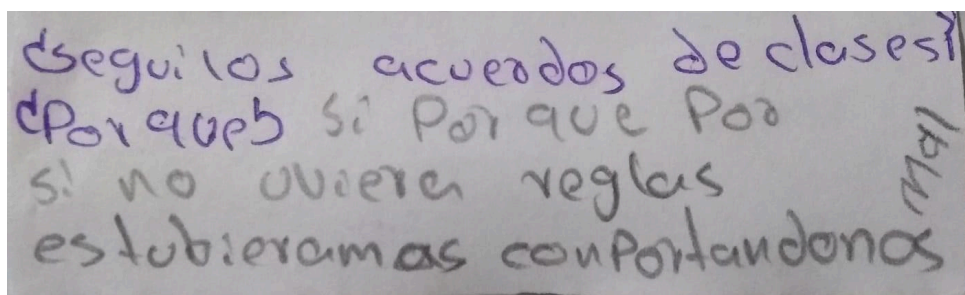 ¿seguilos acuerdos de clases?
¿Por que? si Por que Por
si no uviera reglas
estubieramos conportandonos
Mal